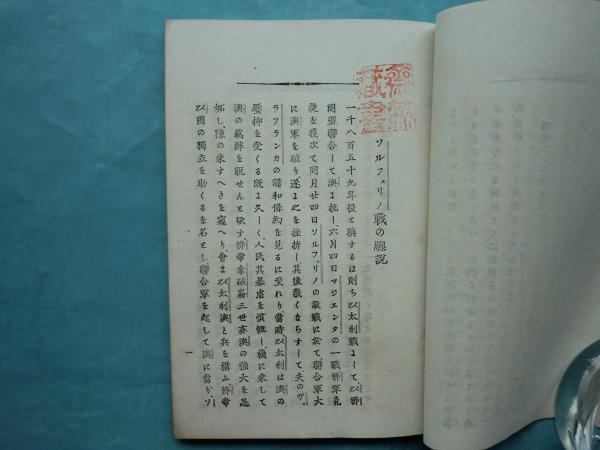 ソルフェリノ戰の總説
一千八百五十九年役と稱するは則ち以太利戰よして、以、佛
同盟聯合して澳よ抗し六月四日マジェンタの一戰佛軍克
捷を獲次て同月廿四日ソルフェリノの激戰に於て聯合軍大
に澳軍を破り遂よ之を挫折し其後幾くならすして夫のヴ井
ラフランカの媾和條約を見るに至れり、當時以太利は澳の
壓抑を受くる既よ久しく、人民其暴虐を憤慨し、機に乘して
澳の羈絆を脱せんと欲す、佛帝拿破崙三世亦澳の強大を忌
妬し隙の乘すへきを窺へり、會ま以太利澳と兵を構ふ、佛帝
以國の獨立を助くるを名とし聯合軍を起して澳に當り、ソ
一
藏書